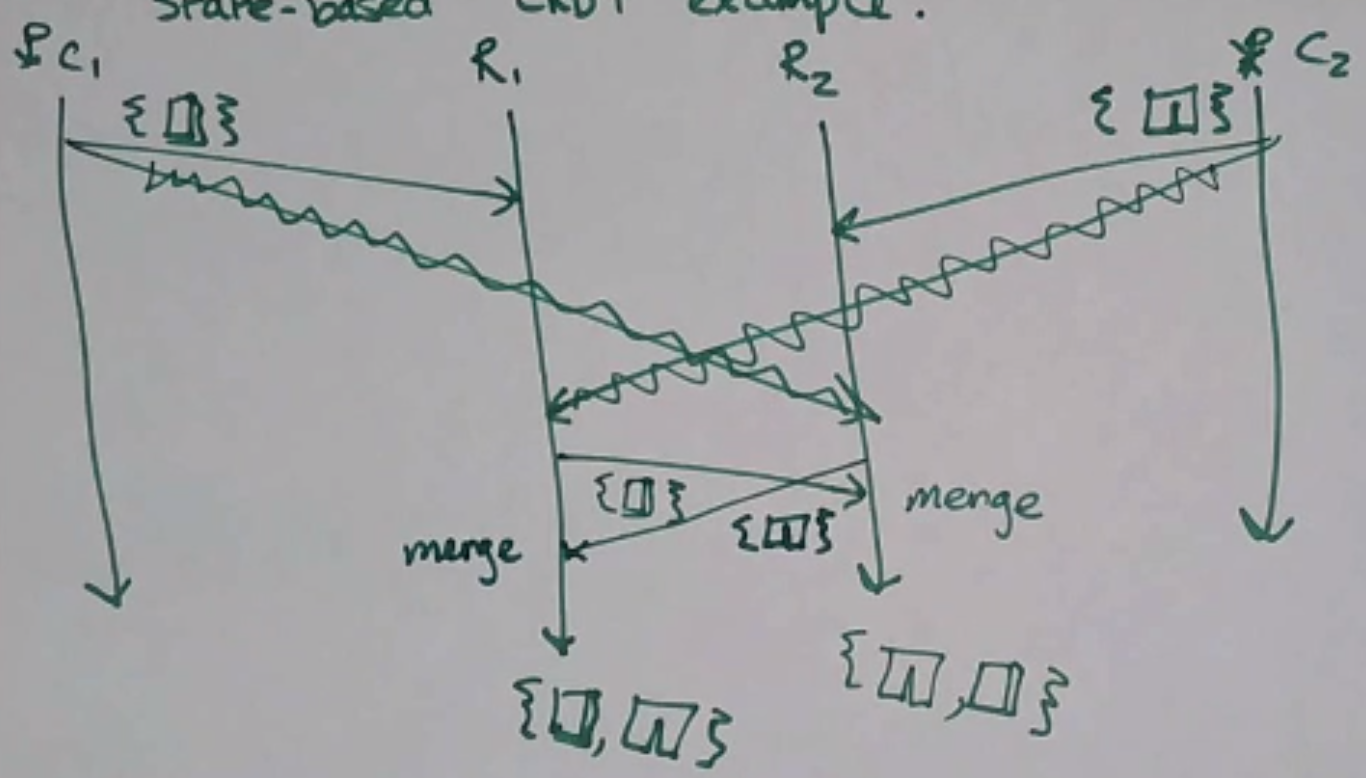 State-based CRDT example.
C₁ R₁ R₂ C₂
merge
merge